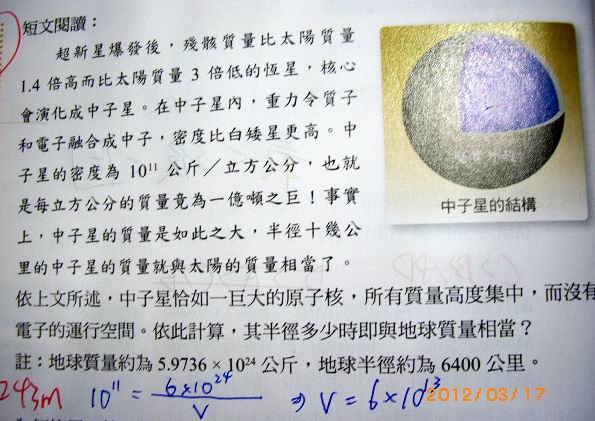 短文閱讀：
超新星爆發後，殘骸質量比太陽質量
1.4 倍高而比太陽質量 3 倍低的恆星，核心
會演化成中子星。在中子星內，重力令質子
和電子融合成中子，密度比白矮星更高。中
子星的密度為 10¹¹ 公斤／立方公分，也就
是每立方公分的質量竟為一億噸之巨！事實
上，中子星的質量是如此之大，半徑十幾公
里的中子星的質量就與太陽的質量相當了。
中子星的結構
依上文所述，中子星恰如一巨大的原子核，所有質量高度集中，而沒有
電子的運行空間。依此計算，其半徑多少時即與地球質量相當？
註：地球質量約為 5.9736 × 10²⁴ 公斤，地球半徑約為 6400 公里。
243m 10¹¹ = 6×10²⁴ / V ⇒ V = 6×10¹³
2012/03/17